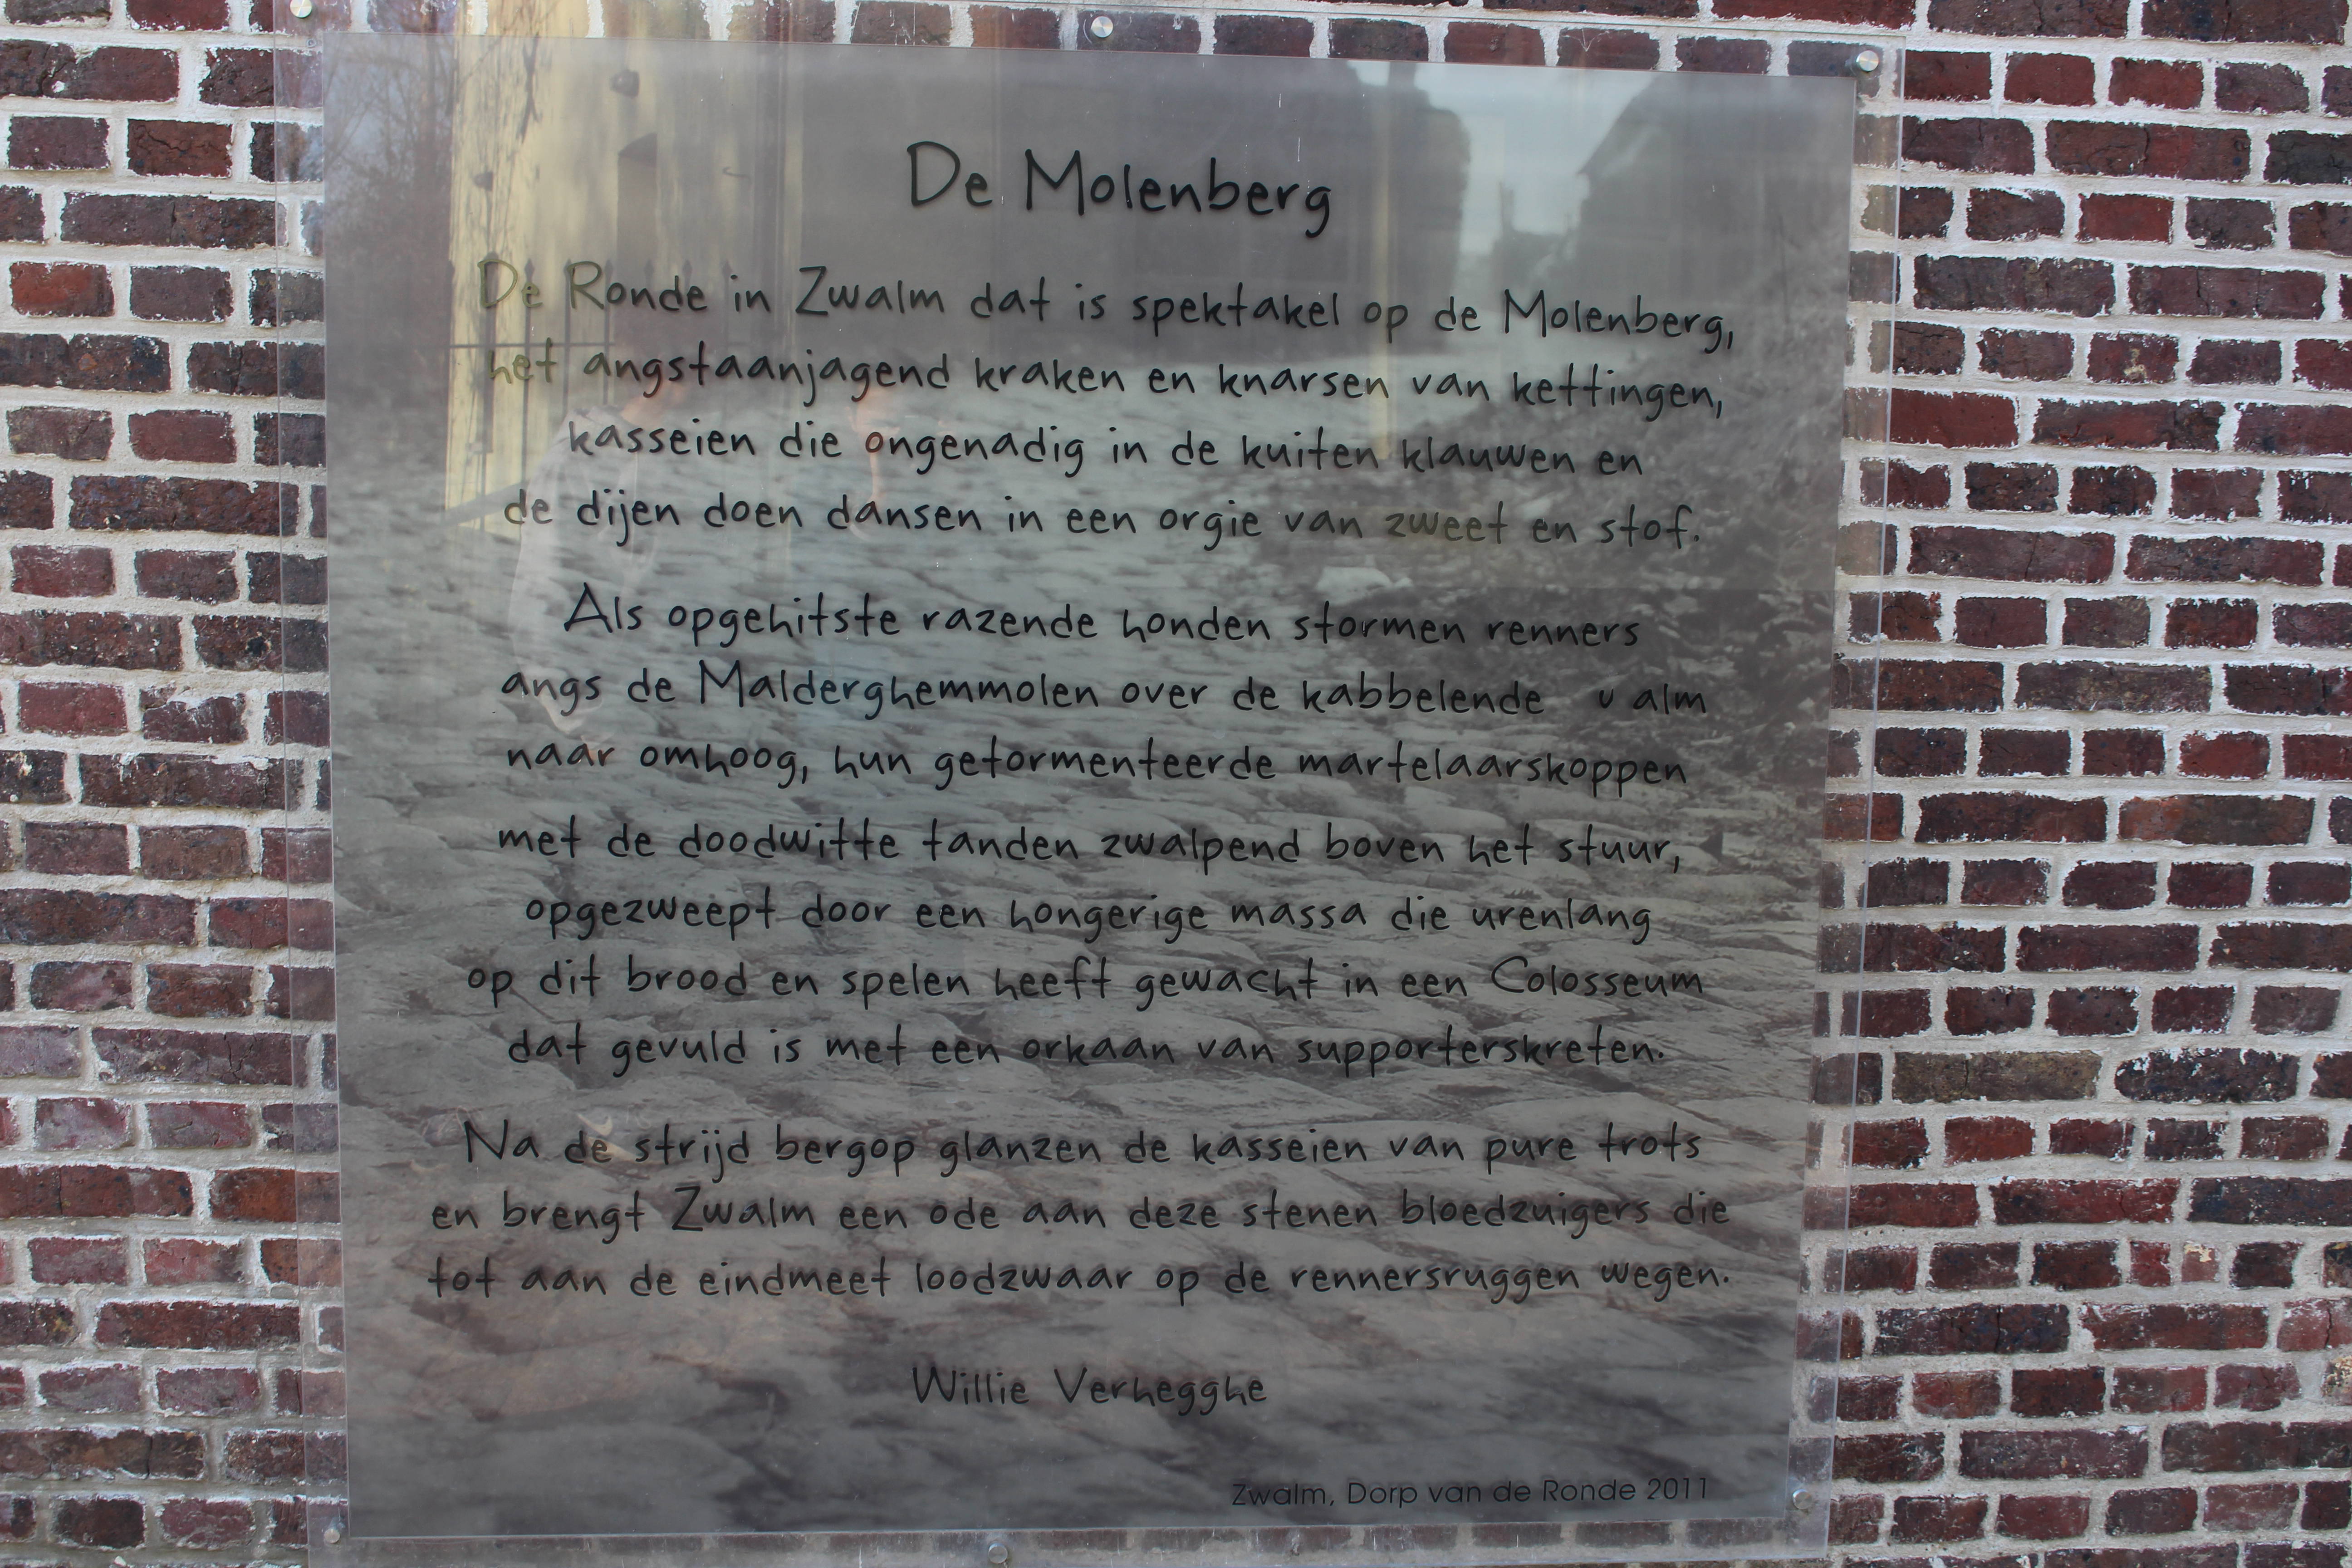 De Molenberg
De Ronde in Zwalm dat is spektakel op de Molenberg,
het angstaanjagend kraken en knarsen van kettingen,
kasseien die ongenadig in de kuiten klauwen en
de dijen doen dansen in een orgie van zweet en stof.
Als opgehitste razende honden stormen renners
angs de Malderghemmolen over de kabbelende alm
naar omhoog, hun getormenteerde martelaarskoppen
met de doodwitte tanden zwalpend boven het stuur,
opgezweept door een hongerige massa die urenlang
op dit brood en spelen heeft gewacht in een Colosseum
dat gevuld is met een orkaan van supporterskreten.
Na de strijd bergop glanzen de kasseien van pure trots
en brengt Zwalm een ode aan deze stenen bloedzuigers die
tot aan de eindmeet loodzwaar op de rennersruggen wegen.
Willie Verhegghe
Zwalm, Dorp van de Ronde 2011